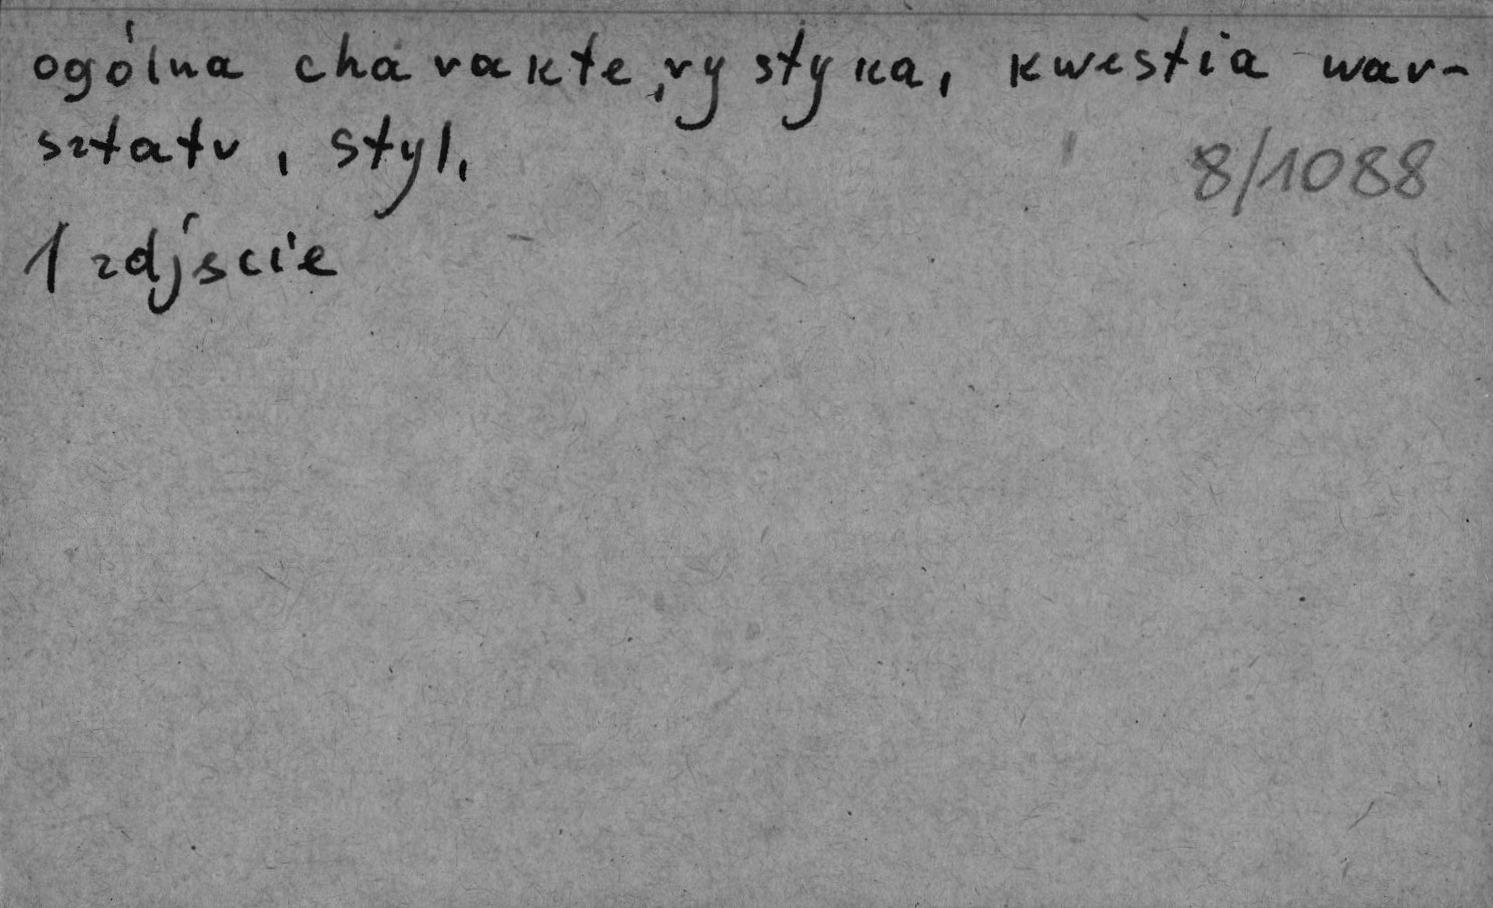 ogólna charakterystyka, kwestia war-
sztatu, styl,
8/1088
1 zdjście